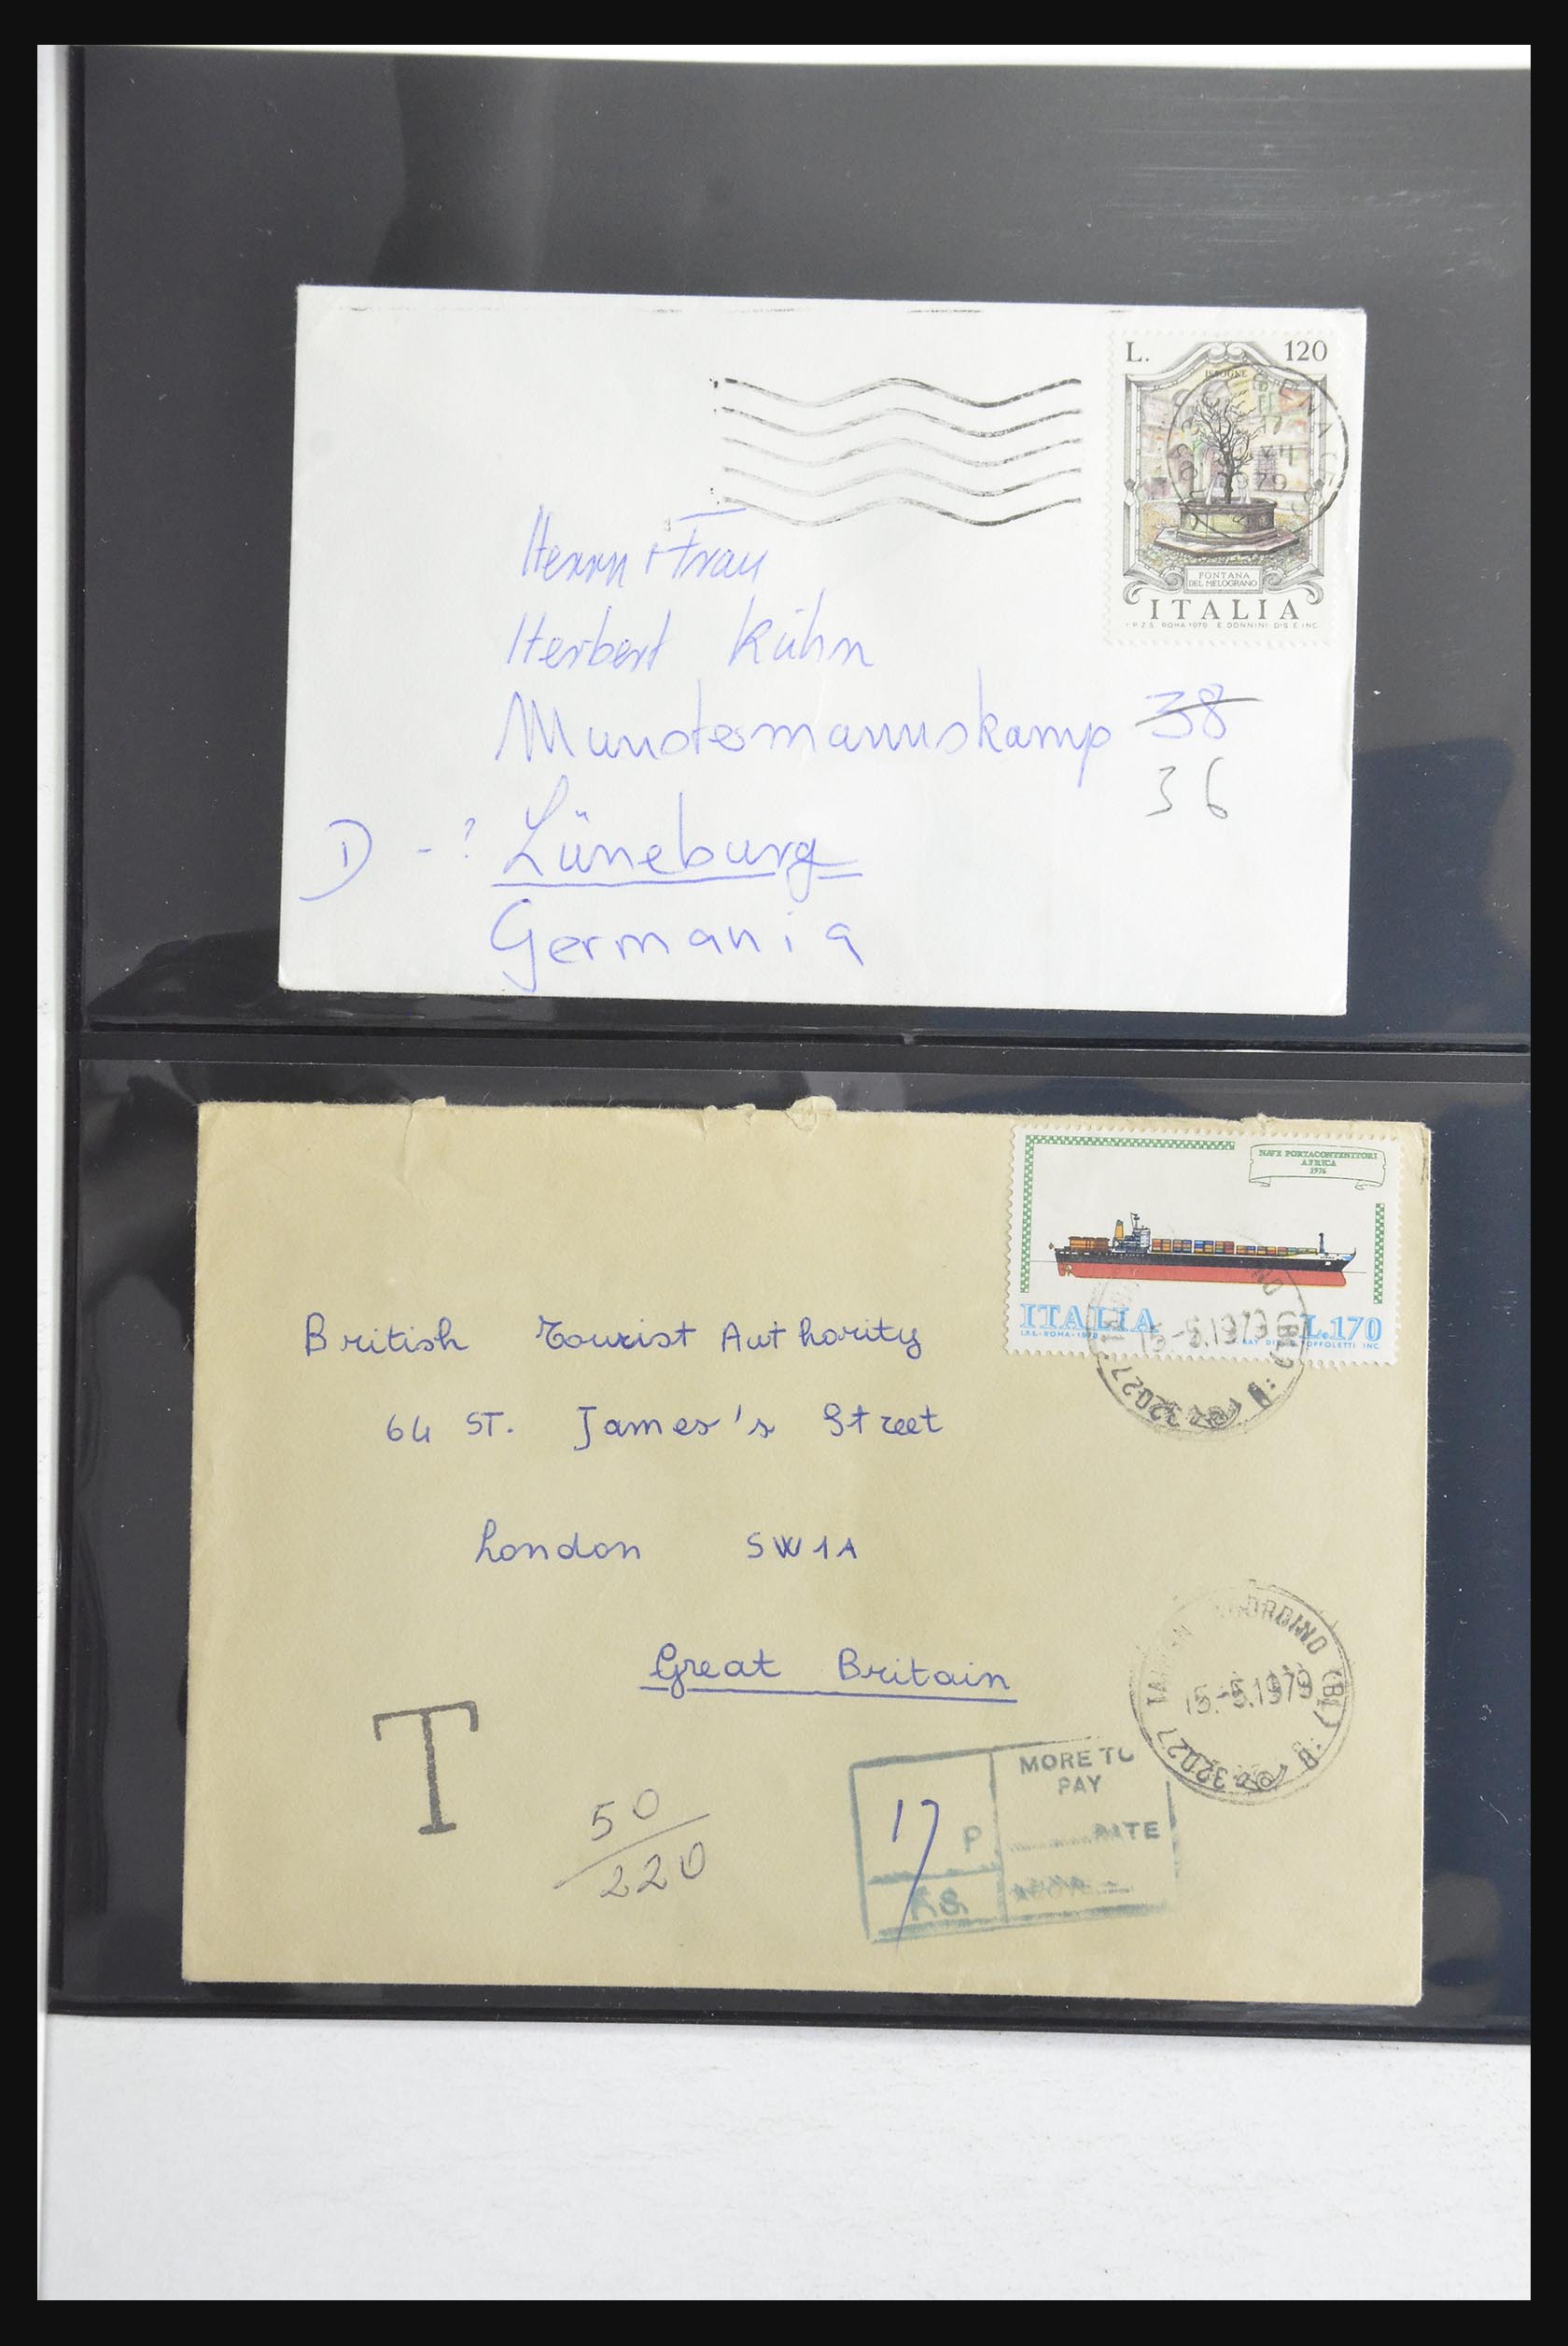 L. 120
ISSOGNE
1979
FONTANA
DEL MELOGRANO
ITALIA
I.P.Z.S. ROMA 1979 E. DONNINI DIS. E INC.
Herrn + Frau
Herbert Kühn
38
36
D - ? Lüneburg
Germania
NAVE PORTACONTENITORI
AFRICA
1976
ITALIA L. 170
TOFFOLETTI INC.
15.-5.1979
32027
British Tourist Authority
64 ST. James's Street
London SW1A
Great Britain
AGORDINO (BL)
15.-5.1979
32027
T
50
220
MORE TO
PAY
17 P